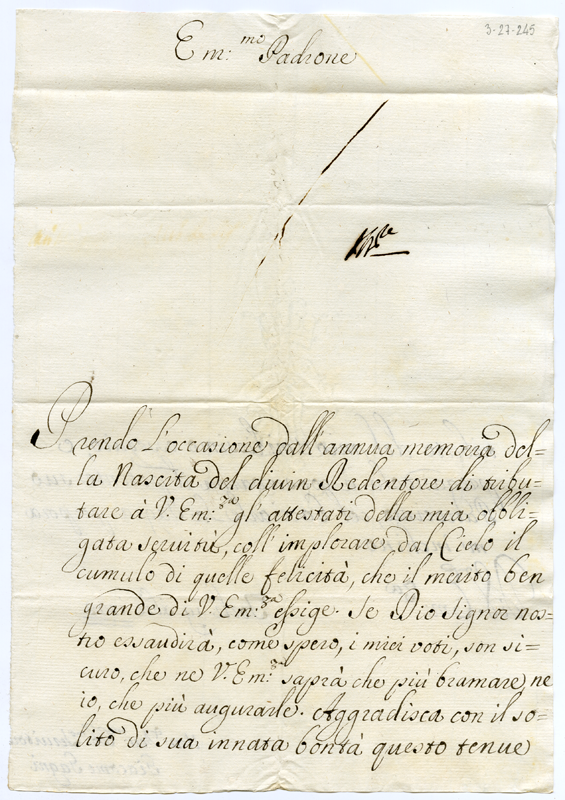 3-27-245
Em:mo Padrone
Prendo l'occasione dall'annua memoria del=
la Nascita del divin Redentore di tribu-
tare à V. Em:za gl'attestati della mia obbli-
gata servitù, coll'implorare dal Cielo il
cumulo di quelle felicità, che il merito ben
grande di V. Em:za essige. Se Dio Signor nos=
tro essaudirà, come spero, i miei voti, son si=
curo, che ne V. Em:za saprà che più bramare ne
io, che più augurarle. Aggradisca con il so=
lito di sua innata bontà questo tenue